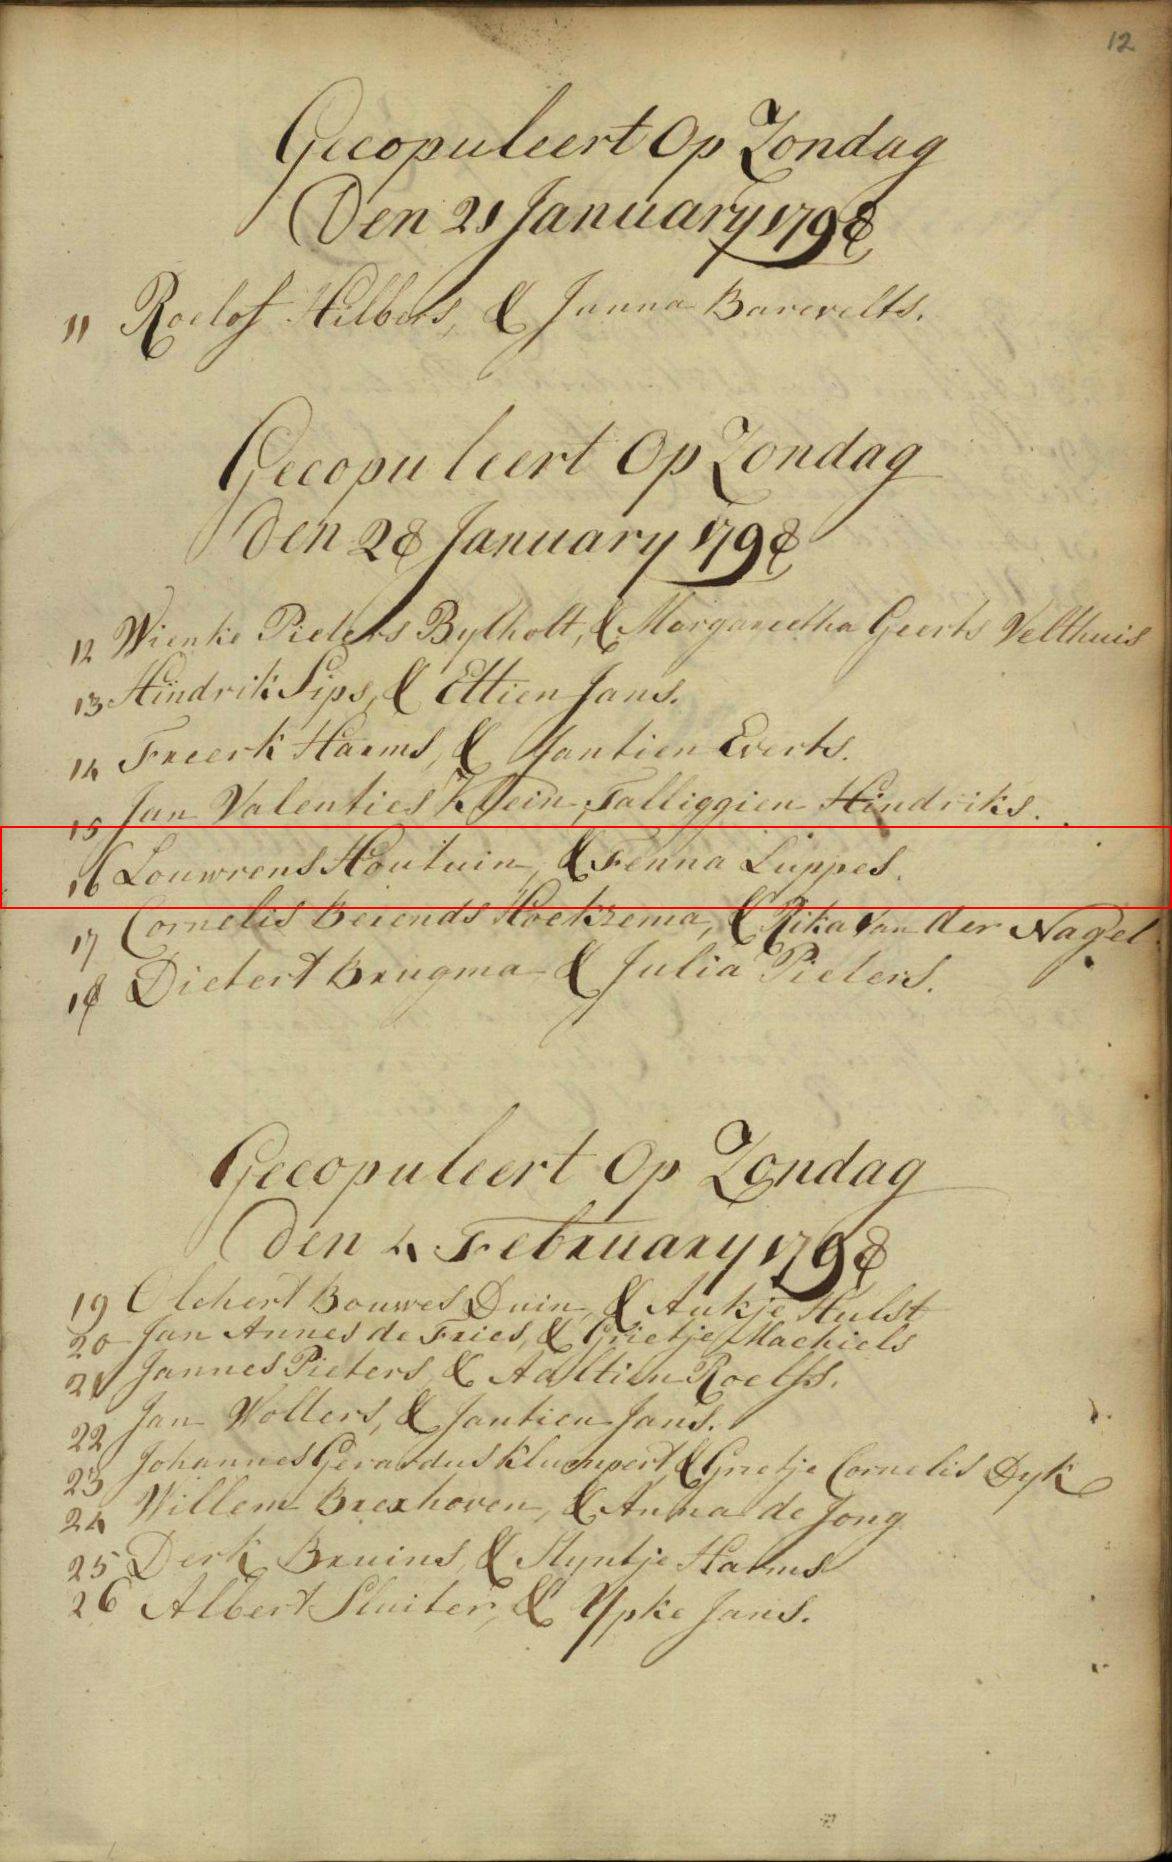 12
Gecopuleert Op Zondag
Den 21 January 1798
11 Roelof Hilbers, & Janna Barevelts.
Gecopuleert Op Zondag
Den 28 January 1798
12 Wienke Pieters Bylholt, & Margaretha Geerts Velthuis
13 Hindrik Sips, & Ettien Jans.
14 Freerk Harms, & Jantien Everts.
15 Jan Valenties Klein, Talliggien Hindriks.
16 Louwrens Houtuin, & Fenna Luppes.
17 Cornelis Beiends Hoekzema, & Rika Van der Nagel
18 Dietert Brugma & Julia Pieters.
Gecopuleert Op Zondag
Den 4 February 1798
19 Olchert Bouwes Duin, & Aukje Hulst
20 Jan Annes de Fries, & Grietje Machiels
21 Jannes Pieters, & Aaltien Roelfs.
22 Jan Wolters, & Jantien Jans.
23 Johannes Gerardus Klumpert, & Grietje Cornelis Dyk
24 Willem Brexhoven, & Anna de Jong
25 Derk Bruins, & Styntje Harms
26 Albert Sluiter, & Ypke Jans.